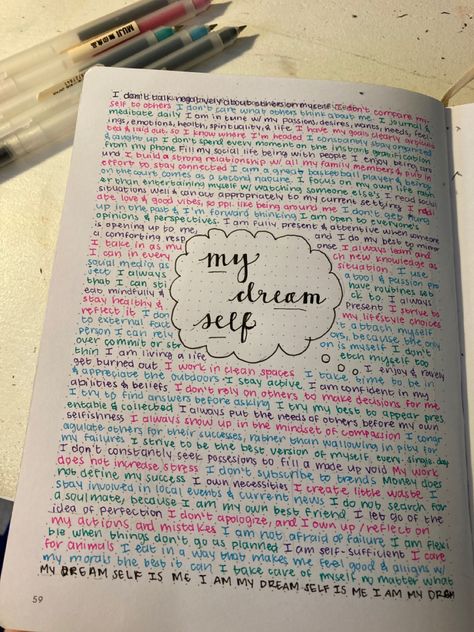 MUJI
I don't talk negatively about others or myself I don't compare my-
self to others I don't care what others think about me I journal &
meditate daily I am in tune w/ my passions, desires, wants, needs, feel-
ings, emotions, health, spirituality, & life I have my goals clearly
& laid out, so I know where I'm headed I constantly stay organized
& caught up I don't spend every moment on the instant gratification
from my phone I fill my social life being with people I enjoy being
and I build a strong relationship w/ all my family members & put in
effort to stay connected I am a great basketball player & being
on the court comes as a second nature I focus on my own life rath-
er than entertaining myself w/ watching someone else's I read social
situations well & can act appropriately to my current settings I
love & good vibes, so ppl like being around me I don't get
up in the past & I'm forward thinking I am open to everyone's
opinions & perspectives I am fully present & attentive when someone
is opening up to me, and I do my best to
a comforting resp onse I always learn and
I take in as mu ch new knowledge as
I can in every situation I use
social media as tool & passion
ject I always have routines set
that I can sti ck to I always
eat mindfully & present I strive to
stay healthy & my lifestyle choices
reflect it I don t attach myself
to external fact ors, because the only
person I can rely on is myself I don't
over commit or str etch myself too
thin I am living a life I enjoy & rarely
get burned out I work in clean spaces I take time to be in
& appreciate the outdoors I stay active I am confident in my
abilities & beliefs I don't rely on others to make decisions for me
I try to find answers before asking I try my best to appear pres-
entable & collected I always put the needs of others before my own
selfishness I always show up in the mindset of compassion I congr-
agulate others for their successes, rather than wallowing in pity for
my failures I strive to be the best version of myself every single day
I don't constantly seek possesions to fill a made up void My work
does not increase stress I don't subscribe to trends Money does
not define my success I own necessities I create little waste I
stay involved in local events & current news I do not search for
a soulmate, because I am my own best friend I let go of the
idea of perfection I don't apologize, and I own up / reflect on
my actions and mistakes I am not afraid of failure I am flexi-
ble when things don't go as planned I am self-sufficient I care
for animals I eat in a way that makes me feel good & aligns w/
my morals the best it can I take care of myself no matter what
MY DREAM SELF IS ME I AM MY DREAM SELF IS ME I AM MY DREAM
my
dream
self
59